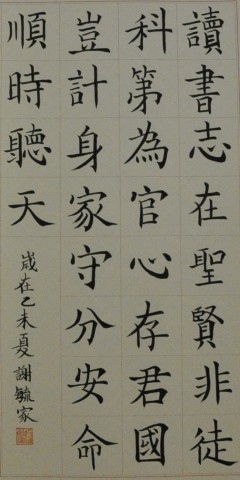 讀書志在聖賢非徒
科第為官心存君國
豈計身家守分安命
順時聽天
歲在乙未夏謝毓家